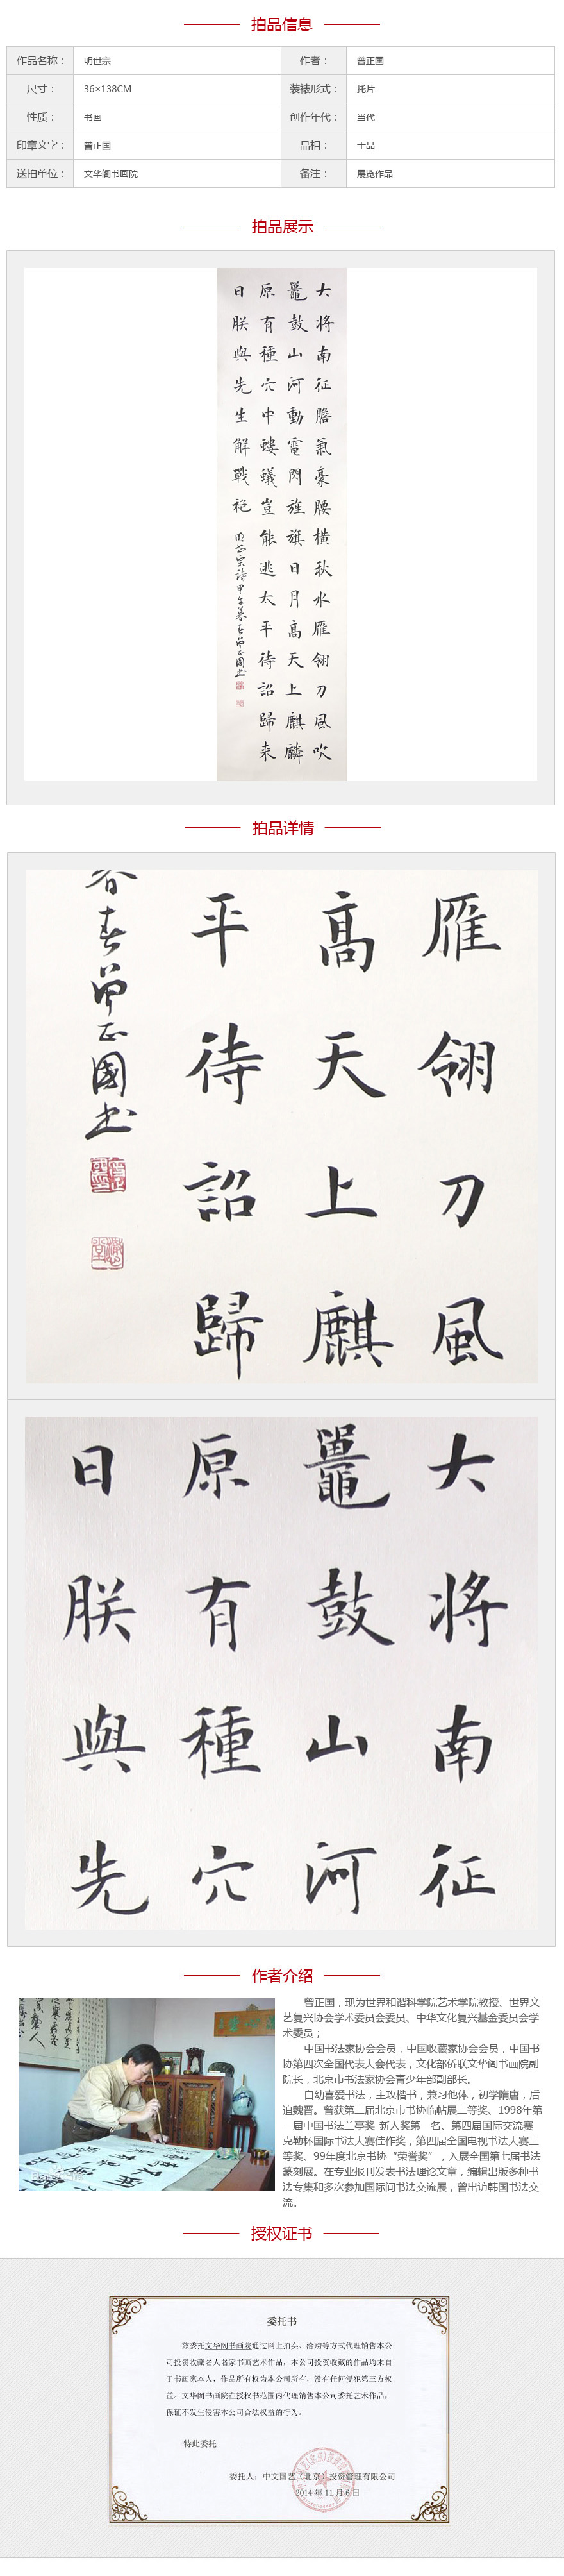 拍品信息
作品名称： 明世宗 作者： 曾正国
尺寸： 36×138CM 装裱形式： 托片
性质： 书画 创作年代： 当代
印章文字： 曾正国 品相： 十品
送拍单位： 文华阁书画院 备注： 展览作品
拍品展示
大将南征膽氣豪腰横秋水雁翎刀風吹
鼉鼓山河動電閃旌旗日月高天上麒麟
原有種穴中螻蟻豈能逃太平待詔歸来
日朕與先生解戰袍
拍品详情
雁翎刀風
高天上麒
平待詔歸
春曾正國书
大将南征
鼉鼓山河
原有種穴
日朕與先
作者介绍
曾正国，现为世界和谐科学院艺术学院教授、世界文
艺复兴协会学术委员会委员、中华文化复兴基金委员会学
术委员；
中国书法家协会会员，中国收藏家协会会员，中国书
协第四次全国代表大会代表，文化部侨联文华阁书画院副
院长，北京市书法家协会青少年部副部长。
自幼喜爱书法，主攻楷书，兼习他体，初学隋唐，后
追魏晋。曾获第二届北京市书协临帖展二等奖、1998年第
一届中国书法兰亭奖-新人奖第一名、第四届国际交流赛
克勒杯国际书法大赛佳作奖，第四届全国电视书法大赛三
等奖、99年度北京书协“荣誉奖”，入展全国第七届书法
篆刻展。在专业报刊发表书法理论文章，编辑出版多种书
法专集和多次参加国际间书法交流展，曾出访韩国书法交
流。
授权证书
委托书
兹委托文华阁书画院通过网上拍卖、洽购等方式代理销售本公
司投资收藏名人名家书画艺术作品，本公司投资收藏的作品均来自
于书画家本人，作品所有权为本公司所有，没有任何侵犯第三方权
益。文华阁书画院在授权书范围内代理销售本公司委托艺术作品，
保证不发生侵害本公司合法权益的行为。
特此委托
委托人：中文国艺（北京）投资管理有限公司
2014年11月6日